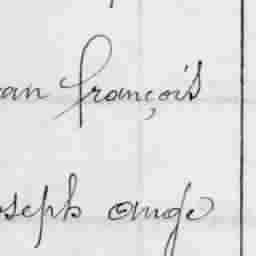 an françois
oseph ange